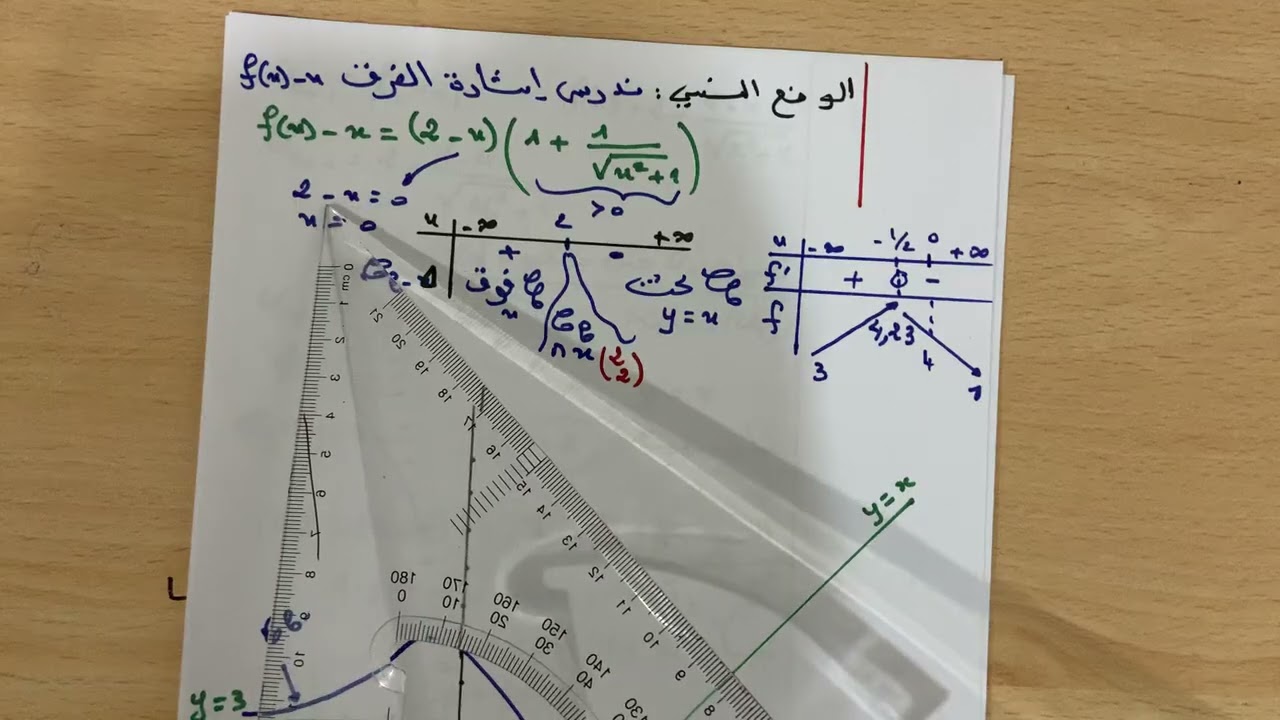 الوضع النسبي: ندرس إشارة الفرق f(x)-x
f(x) - x = (2 - x)(1 + 1/√(x²+1))
> 0
2 - x = 0
x = 0
x -∞ 2 +∞
+ -
فوق x
تحت y = x
∩ x (2 2)
x -∞ -1/2 0 +∞
f' + 0 -
f 3 4,23 4 1
y = x
y = 3
0 cm 1 2 3 4 5 6 7 8 9 10
21 20 19 18 17 16 15 14 13 12 11 10 9 8
180 170 160 150 140 130
0 10 20 30 40